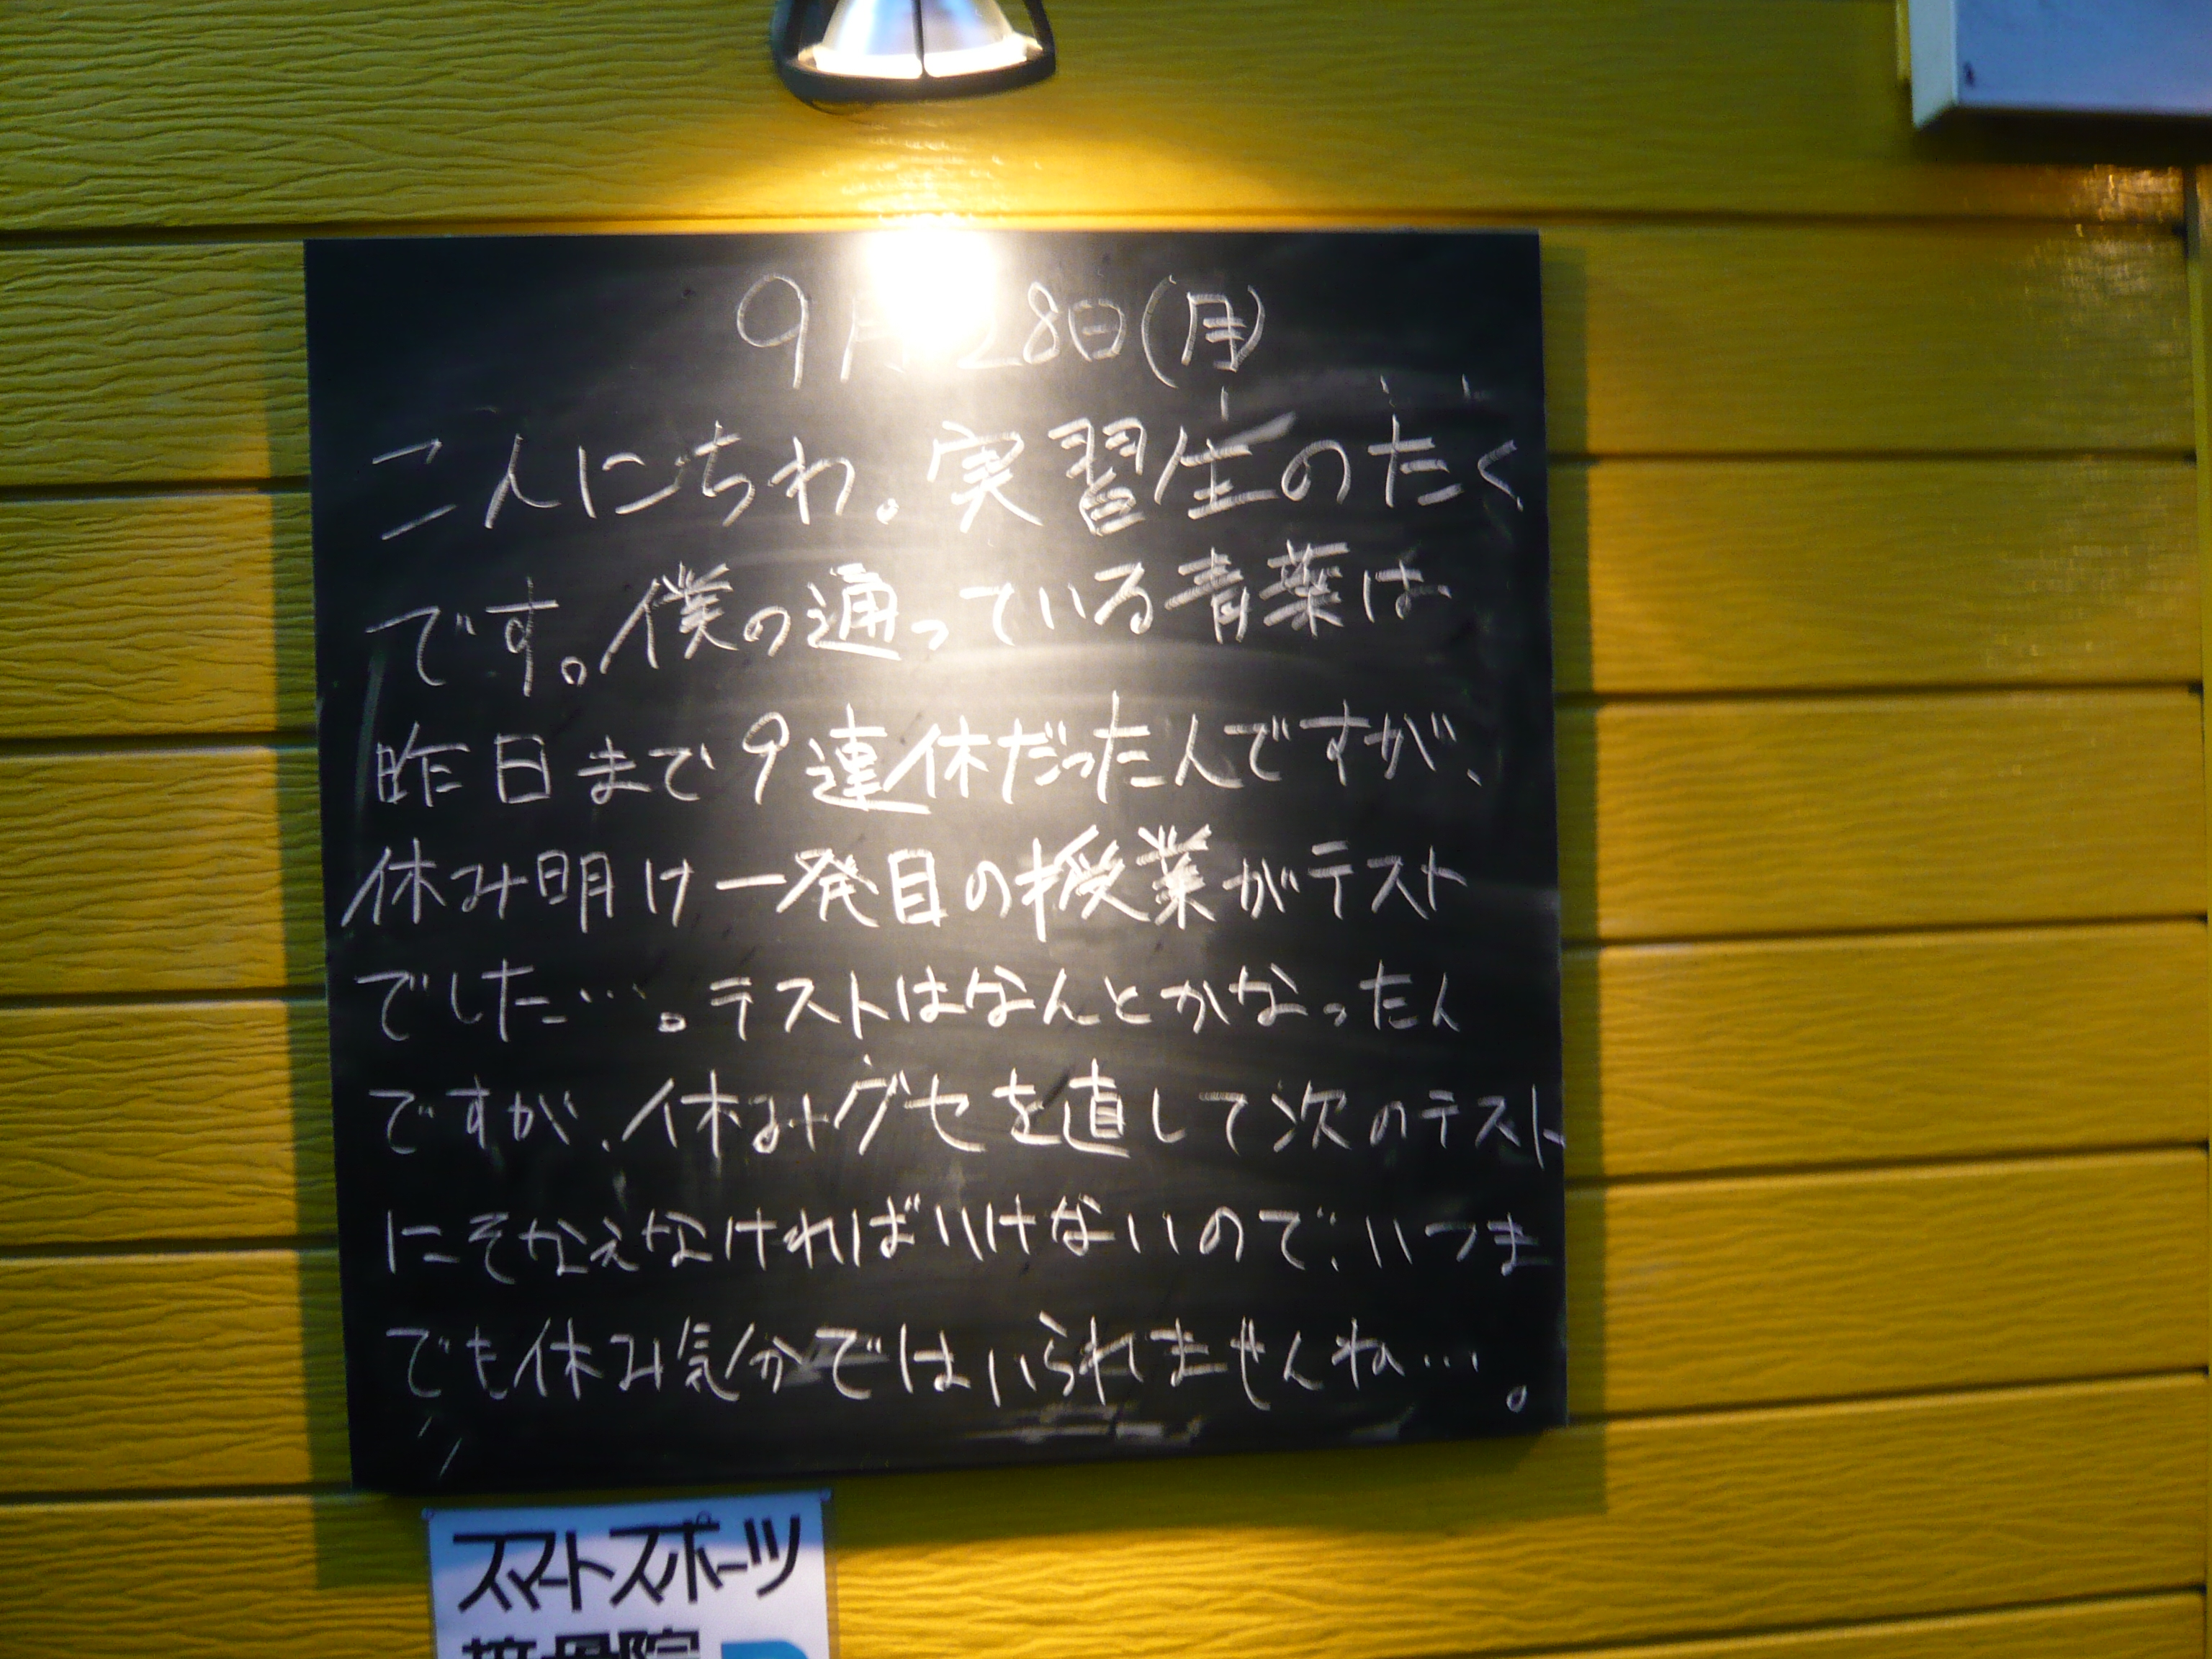 9月28日(月)
こんにちわ。実習生のたく
です。僕の通っている青葉は
昨日まで9連休だったんですが、
休み明け一発目の授業がテスト
でした…。テストはなんとかなったん
ですが、休みグセを直して次のテスト
にそなえなければいけないので、いつま
でも休み気分ではいられませんね…。
スマートスポーツ
接骨院